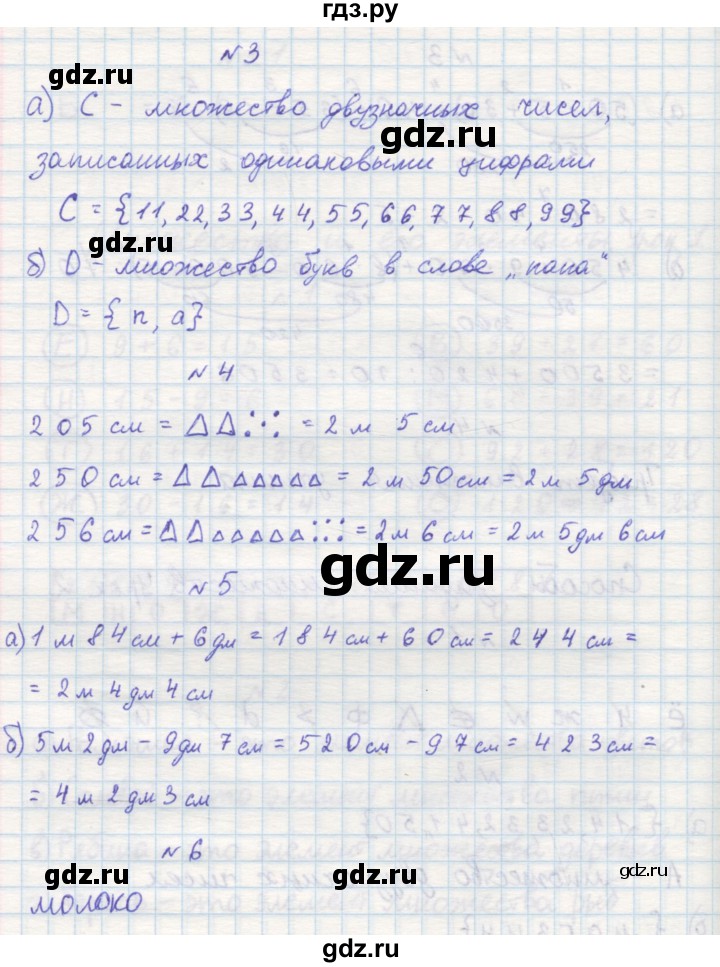 гдз.ру
№3
gdz.ru
а) С - множество двузначных чисел,
gdz.ru
записанных одинаковыми цифрами
С = {11, 22, 33, 44, 55, 66, 77, 88, 99}
gdz.ru
б) D - множество букв в слове „папа“
D = {п, а}
gdz.ru
№4
205 см = △△∴∵ = 2 м 5 см
250 см = △△△△△△△ = 2 м 50 см = 2 м 5 дм
gdz.ru
256 см = △△△△△△△:::  = 2 м 6 см = 2 м 5 дм 6 см
gdz.ru
№5
а) 1 м 84 см + 6 дм = 184 см + 60 см = 244 см =
= 2 м 4 дм 4 см
gdz.ru
б) 5 м 2 дм - 9 дм 7 см = 520 см - 97 см = 423 см =
= 4 м 2 дм 3 см
№6
gdz.ru
gdz.ru
gdz.ru
молоко
gdz.ru
gdz.ru